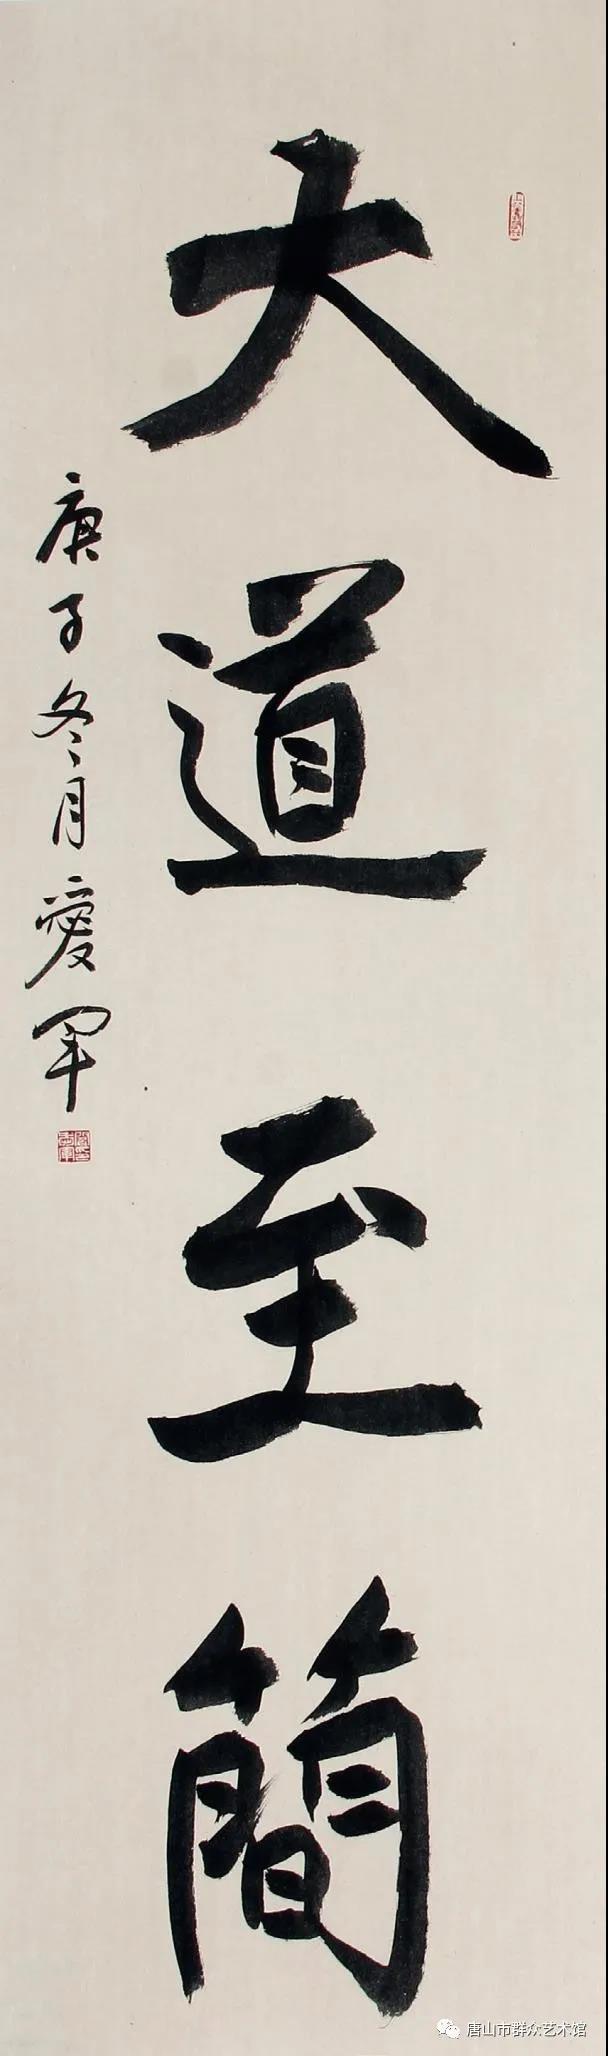 大道至簡
庚子冬月愛軍
唐山市群众艺术馆